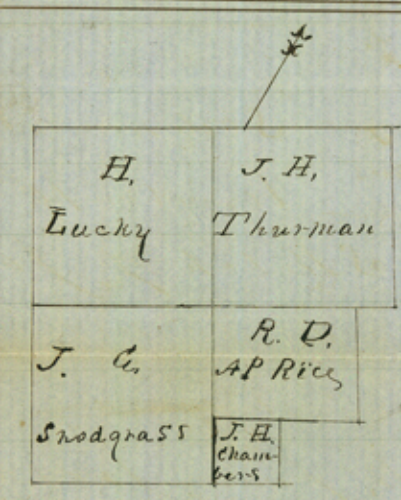 H,
Lucky
J. H,
Thurman
J. G.
Snodgrass
R. D.
AP Rice
J. H.
Cham-
bers